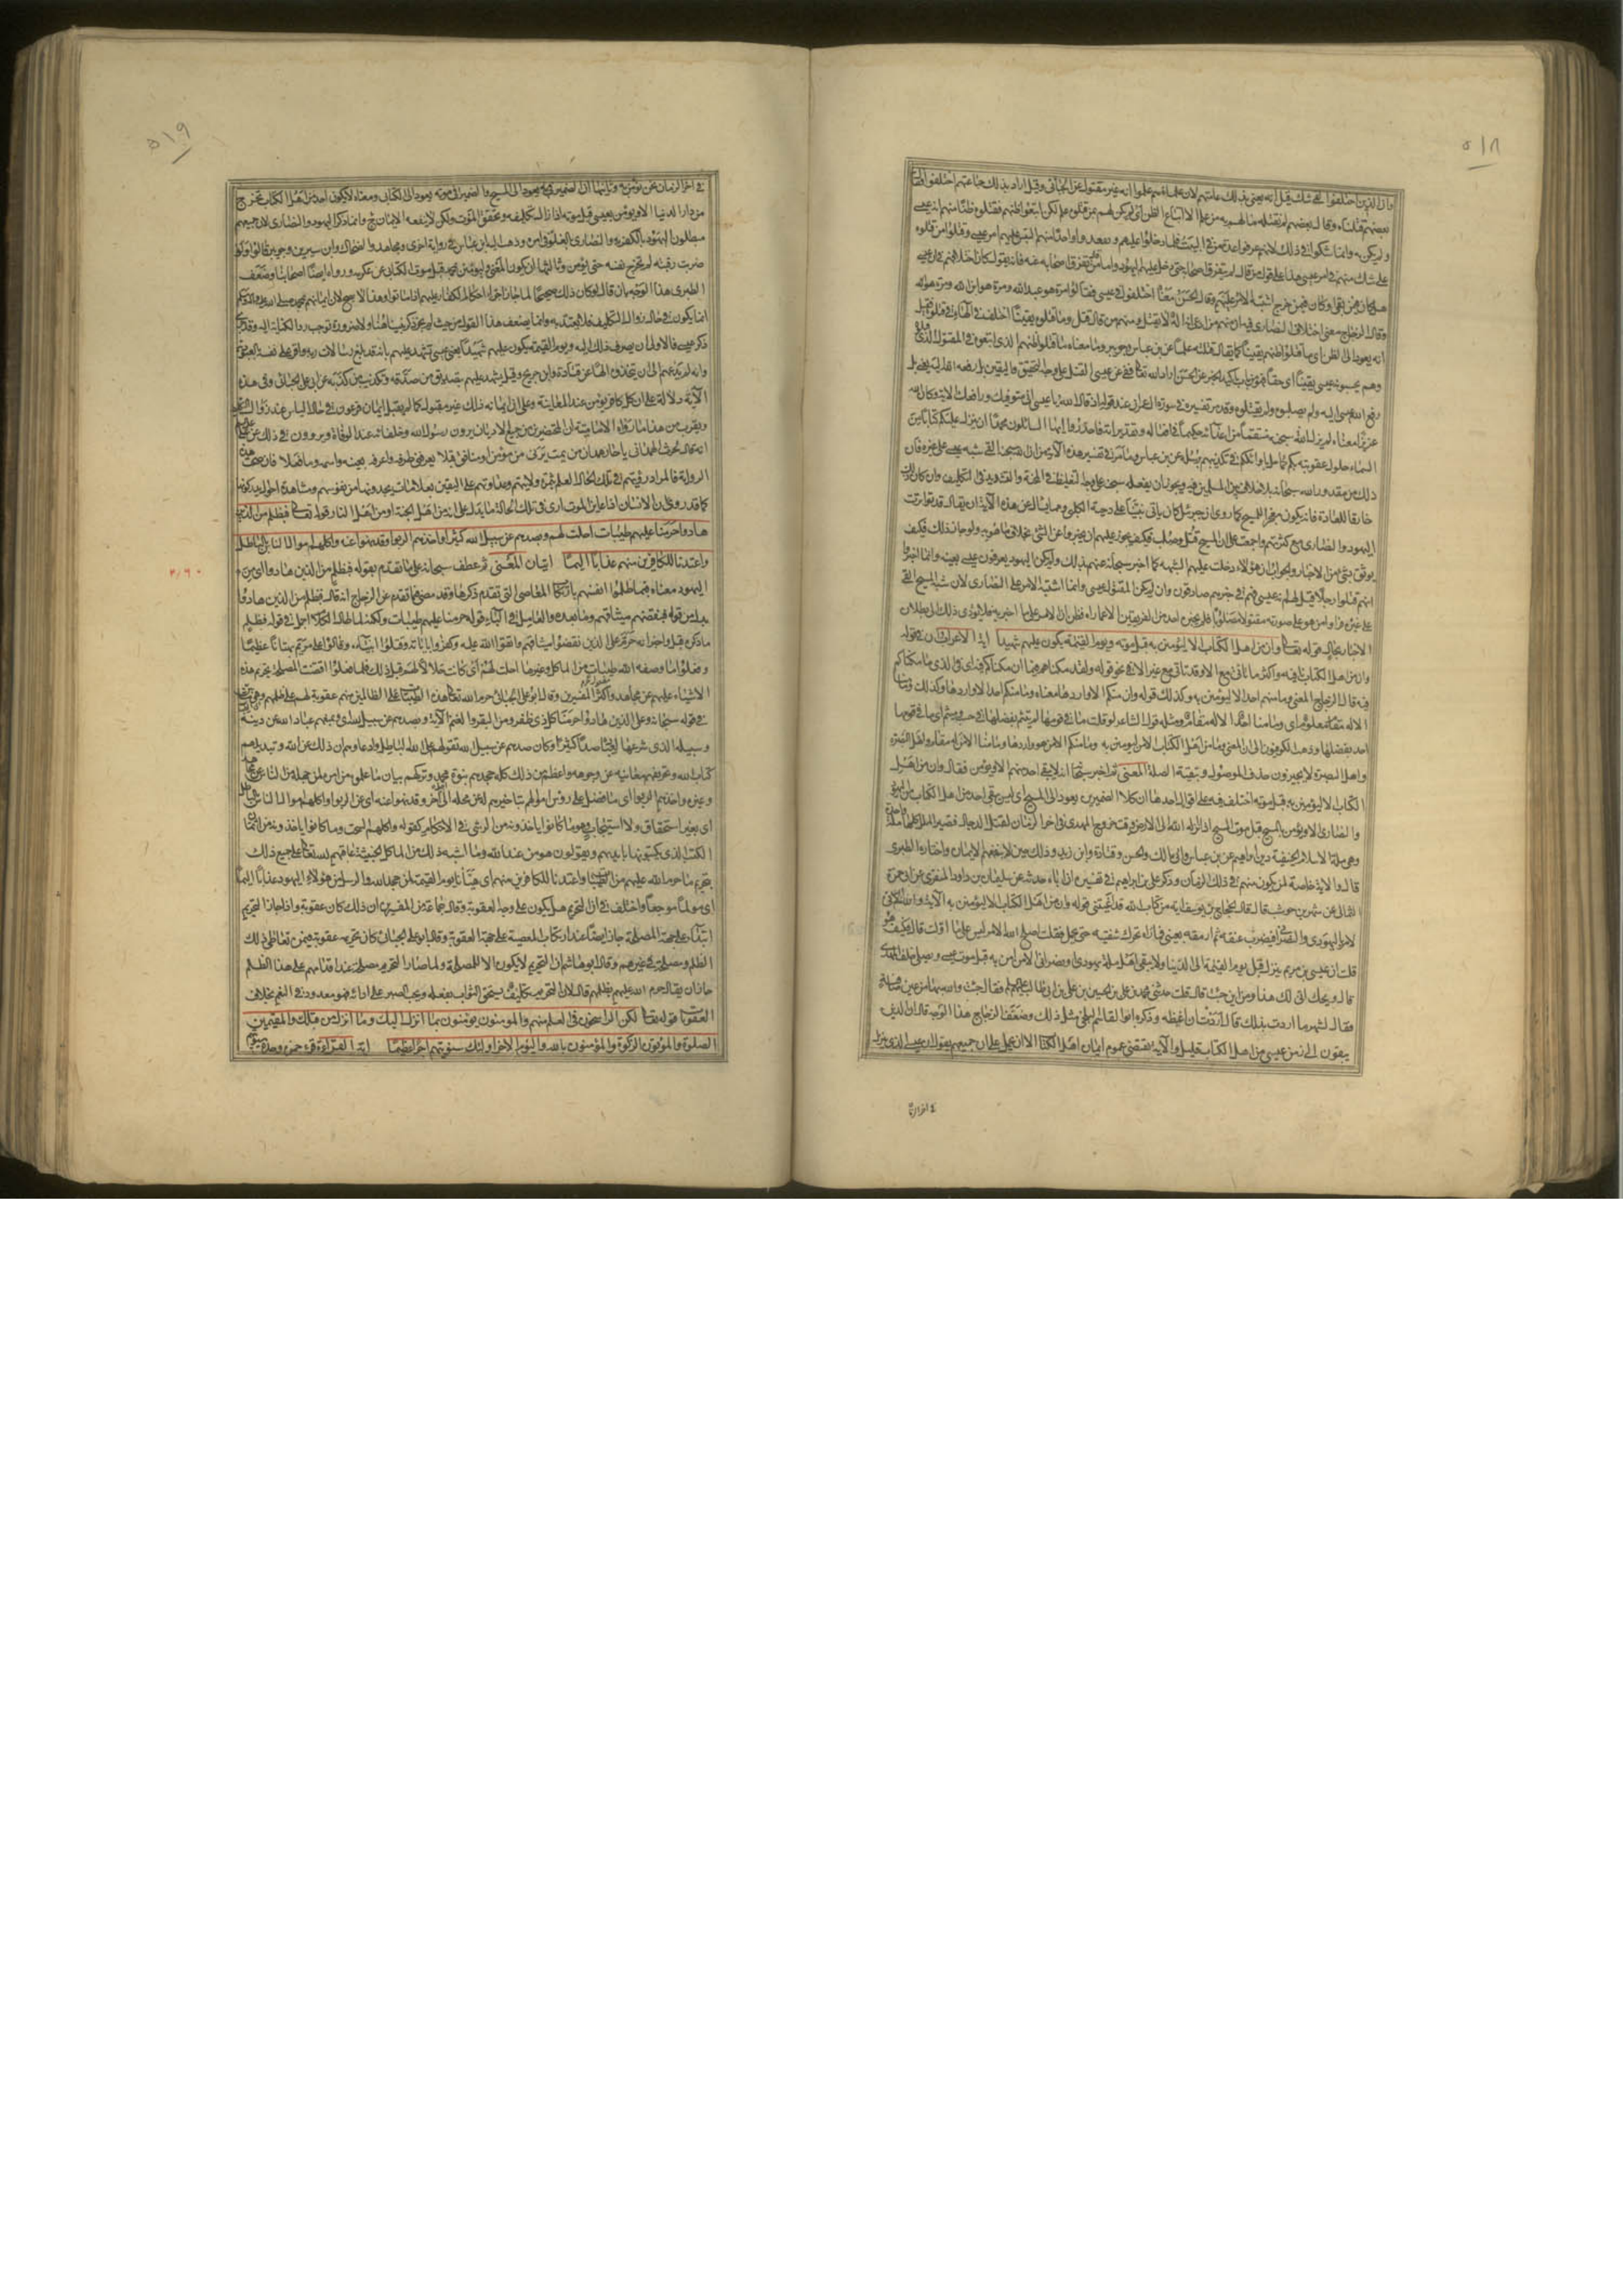 ٥١٨
وان الذين اختلفوا لفي شك قيل انه يعني بذلك عامتهم لان علماءهم علموا انه غير مقتول عن الجبائي وقيل اراد بذلك جماعتهم اختلفوا
بعضهم قتلناه وقال بعضهم لم نقتله ما لهم به من علم الا اتباع الظن اي لم يكن لهم بمن قتلوه علم لكن اتبعوا ظنهم فقتلوه ظنا منهم انه عيسى
ولم يكن به وانما شكوا في ذلك لانهم عرفوا عدة من في البيت فلما دخلوا عليهم وفقدوا واحدا منهم التبس عليهم امر عيسى وقتلوا من قتلوه
على شك منهم في امر عيسى هذا على قول من قال لم يتفرق اصحابه حتى دخل عليهم اليهود واما من قال تفرق اصحابه عنه فانه يقول كان اختلافهم في ان عيسى
هل كان فيمن بقي او كان فيمن خرج اشتبه الامر عليهم وقال الحسن معناه اختلفوا في عيسى فقالوا مرة هو عبد الله ومرة هو ابن الله ومرة هو الله
وقال الزجاج معنى اختلاف النصارى فيه ان منهم من ادعى انه اله لم يقتل ومنهم من قال قتل وما قتلوه يقينا اختلف في الهاء في قتلوه فقيل
انه يعود الى الظن اي ما قتلوا ظنهم يقينا كما يقال قتله علما عن ابن عباس وجويبر ومعناه ما قتلوا ظنهم الذي اتبعوه في المقتول الذي قتلوه
وهم يحسبونه عيسى يقينا
رفع الله عيسى اليه ولم يصلبوه ولم يقتلوه وقد مر تفسيره في سورة ال عمران عند قوله اذ قال الله يا عيسى اني متوفيك ورافعك الي الاية وكان الله
عزيزا حكيما معناه لم يزل الله سبحانه منتقما من اعدائه حكيما في افعاله وتقديراته فاحذروا ايها السائلون محمدا ان ينزل عليكم كتابا من
السماء حلول عقوبة بكم كما حل باوائلكم في تكذيبهم رسله عن ابن عباس وما مر في تفسير هذه الآية من ان الله سبحانه القى شبه عيسى على غيره فان
ذلك من مقدور الله سبحانه بلا خلاف بين المسلمين فيه ويجوز ان يفعله سبحانه على وجه التغليظ في المحنة والتشديد في التكليف وان كان ذلك
خارقا للعادة فانه يكون معجزا للمسيح كما روي ان جبرئيل كان ياتي نبينا على صورة دحية الكلبي ومما يسال عن هذه الآية ان يقال قد تواترت
اليهود والنصارى مع كثرتهم واجمعت على ان المسيح قتل وصلب فكيف يجوز عليهم ان يخبروا عن الشئ بخلاف ما هو به ولو جاز ذلك فكيف
يوثق بشئ من الاخبار والجواب ان هؤلاء دخلت عليهم الشبهة كما اخبر سبحانه عنهم بذلك ولم يكن اليهود يعرفون عيسى بعينه وانما اخبروا
انهم قتلوا رجلا قيل لهم انه عيسى فهم في خبرهم صادقون وان لم يكن المقتول عيسى وانما اشتبه الامر على النصارى لان شبه المسيح القي
على غيره فراوا من هو على صورته مقتولا مصلوبا فلم يخبر احد من الفريقين الا عما راه وظن ان الامر على ما اخبر به فلا يؤدي ذلك الى بطلان
الاخبار بحال قوله تعالى وان من اهل الكتاب الا ليؤمنن به قبل موته ويوم القيمة يكون عليهم شهيدا اية الاعراب ان في قوله
وان من اهل الكتاب نافية واكثر ما تاتي مع الا وقد تاتي مع غير الا في نحو قوله ولقد مكناهم فيما ان مكناكم فيه اي في الذي ما مكناكم
فيه قال الزجاج المعنى وما منهم احد الا ليؤمنن به وكذلك قوله وان منكم الا واردها معناه وما منكم احد الا واردها وكذلك وما منا
الا له مقام معلوم اي وما منا احد الا له مقام ومثله قول الشاعر لو قلت ما في قومها لم تيثم يفضلها في حسب وميسم اي ما في قومها
احد يفضلها وذهب الكوفيون الى ان المعنى وما من اهل الكتاب الا من ليؤمنن به وما منكم الا من هو واردها وما منا الا من له مقام واهل البصرة
واهل البصرة لا يجيزون حذف الموصول وتبقية الصلة المعنى ثم اخبر سبحانه انه لا يبقى احد منهم الا ويؤمن فقال وان من اهل
الكتاب الا ليؤمنن به قبل موته اختلف فيه على اقوال احدها ان كلا الضميرين يعودان الى المسيح اي ليس يبقى احد من اهل الكتاب من اليهود
والنصارى الا ويؤمن بالمسيح قبل موت المسيح اذا انزله الله الى الارض وقت خروج المهدي في اخر الزمان لقتل الدجال فتصير الملل كلها ملة واحدة
وهي ملة الاسلام الحنيفية دين ابراهيم عن ابن عباس وابي مالك والحسن وقتادة وابن زيد وذلك حين لا ينفعهم الايمان واختاره الطبري
قال والاية خاصة لمن يكون منهم في ذلك الزمان وذكر علي بن ابراهيم في تفسيره ان اباه حدثه عن سليمان بن داود المنقري عن ابي حمزة
الثمالي عن شهر بن حوشب قال قال الحجاج بن يوسف اية من كتاب الله قد اعيتني قوله وان من اهل الكتاب الا ليؤمنن به الآية والله اني
لامر باليهودي والنصراني فيضرب عنقه ثم ارمقه بعيني فما اراه يحرك شفتيه حتى يحمل فقلت اصلح الله الامير ليس على ما اولت قال فكيف هو
قلت ان عيسى بن مريم ينزل قبل يوم القيمة الى الدنيا ولا يبقى اهل ملة يهودي او نصراني الا امن به قبل موت عيسى ويصلي خلف المهدي
قال ويحك انى لك هذا ومن اين جئت به قال قلت حدثني محمد بن علي بن الحسين بن علي بن ابي طالب عليهم السلام فقال جئت والله بها من عين صافية
فقال لشهر ما اردت بذلك قال اردت ان اغيظه وذكر ابو القاسم البلخي مثل ذلك وضعف الزجاج هذا الوجه قال ان الذين
يبقون الى زمن عيسى من اهل الكتاب قليل والآية تقتضي عموم ايمان اهل الكتاب الا ان يحمل على ان جميعهم يقولون ان عيسى الذي ينزل
في اخر الزمان
٥١٩
في اخر الزمان نحن نؤمن به وثانيها ان الضمير في به يعود الى المسيح والضمير في موته يعود الى الكتابي ومعناه لا يكون احد من اهل الكتاب يخرج
من دار الدنيا الا ويؤمن بعيسى قبل موته اذا زال تكليفه وتحقق الموت ولكن لا ينفعه الايمان ح وانما ذكر اليهود والنصارى لان جميعهم
مبطلون اليهود بالكفر به والنصارى بالغلو في امره وذهب اليه ابن عباس في رواية اخرى ومجاهد والضحاك وابن سيرين وجويبر قالوا ولو
ضربت رقبته لم تخرج نفسه حتى يؤمن وثالثها ان يكون المعنى ليؤمنن بمحمد قبل موت الكتابي عن عكرمه ورواه ايضا اصحابنا وضعف
الطبري هذا الوجه بان قال لو كان ذلك صحيحا لما جاز اجراء احكام الكفار عليهم اذا ماتوا وهذا لا يصح لان ايمانهم بمحمد صلى الله عليه واله
انما يكون في حال زوال التكليف فلا يعتد به وانما يضعف هذا القول من حيث لم يجر ذكر نبينا هاهنا ولا ضرورة توجب رد الكناية اليه وقد جرى
ذكر عيسى فالاولى ان يصرف ذلك اليه ويوم القيمة يكون عليهم شهيدا يعني عيسى يشهد عليهم بانه قد بلغ رسالات ربه واقر على نفسه بالعبودية
وانه لم يدعهم الى ان يتخذوه الها عن قتادة وابن جريج وقيل يشهد عليهم بتصديق من صدقه وتكذيب من كذبه عن ابي علي الجبائي وفي هذه
الآية دلالة على ان كل كافر يؤمن عند المعاينة وعلى ان ايمانه ذلك غير مقبول كما لم يقبل ايمان فرعون في حال الياس عند زوال التكليف
ويقرب من هذا ما رواه الامامية ان المحتضرين من جميع الاديان يرون رسول الله وخلفائه عند الوفاة ويروون في ذلك عن علي
انه قال للحارث الهمداني يا حار همدان من يمت يرني من مؤمن او منافق قبلا يعرفني طرفه واعرفه بعينه واسمه وما فعلا فان صحت هذه
الرواية فالمراد برؤيتهم في تلك الحال العلم بثمرة ولايتهم وعداوتهم على اليقين بعلامات يجدونها من نفوسهم ومشاهدة احوال يدركونها
كما قد روي ان الانسان اذا عاين الموت اري في تلك الحالة ما يدله على انه من اهل الجنة او من اهل النار قوله تعالى فبظلم من الذين
هادوا حرمنا عليهم طيبات احلت لهم وبصدهم عن سبيل الله كثيرا واخذهم الربوا وقد نهوا عنه واكلهم اموال الناس بالباطل
واعتدنا للكافرين منهم عذابا اليما ايتان المعنى ثم عطف سبحانه على ما تقدم بقوله فبظلم من الذين هادوا اي من
اليهود معناه فبما ظلموا انفسهم بارتكاب المعاصي التي تقدم ذكرها وقد مضى فيما تقدم عن الزجاج انه قال فبظلم من الذين هادوا
بدل من قوله فبما نقضهم ميثاقهم وما بعده والعامل في الباء قوله حرمنا عليهم طيبات ولكنه لما طال الكلام اجمل في قوله فبظلم
ما ذكره قبل واخبر انه حرم على الذين نقضوا ميثاقهم واثقوا الله عليه وكفروا باياته وقتلوا انبياءه وقالوا على مريم بهتانا عظيما
وفعلوا ما وصفه الله طيبات من الماكل وغيرها احلت لهم اي كانت حلالا لهم قبل ذلك فلما فعلوا اقتضت المصلحة تحريم هذه
الاشياء عليهم عن مجاهد واكثر المفسرين وقال ابو علي الجبائي حرم الله تعالى هذه الطيبات على الظالمين منهم عقوبة لهم على ظلمهم وهي ما
في قوله سبحانه وعلى الذين هادوا حرمنا كل ذي ظفر ومن البقر والغنم الآية وبصدهم عن سبيل الله اي وبمنعهم عباد الله عن دينه
وسبيله الذي شرعها لعباده صدا كثيرا وكان صدهم عن سبيل الله بتقولهم على الله الباطل وادعاءهم ان ذلك عن الله وتبديلهم
كتاب الله وتحريفهم معانيه عن وجوهه واعظم من ذلك كله جحدهم نبوة محمد وتركهم بيان ما علموه من امره لمن جهله من الناس عن مجاهد
وغيره واخذهم الربوا اي ما فضل على رؤس اموالهم بتاخيرهم له عن محله الى اجل اخر وقد نهوا عنه اي عن الربوا واكلهم اموال الناس بالباطل
اي بغير استحقاق ولا استيجاب وهو ما كانوا ياخذونه من الرشى في الاحكام كقوله واكلهم السحت وما كانوا ياخذونه من اثمان
الكتب الذي يكتبونها بايديهم ويقولون هو من عند الله وما اشبه ذلك من الماكل الخبيثة عاقبهم الله تعالى على جميع ذلك
بتحريم ما حرم الله عليهم من الطيبات واعتدنا للكافرين منهم اي هيانا يوم القيمة لمن جحد الله والرسل من هؤلاء اليهود عذابا اليما
اي مولما موجعا واختلف في ان التحريم هل يكون على وجه العقوبة وقال جماعة من المفسرين ان ذلك كان عقوبة واذا جاز التحريم
ابتداء على جهة المصلحة جاز ايضا عند ارتكاب المعصية على جهة العقوبة وقال ابو علي الجبائي كان تحريمه عقوبة فيمن تعاطى ذلك
الظلم ومصلحة في غيرهم وقال ابو هاشم ان التحريم لا يكون الا للمصلحة ولما صار التحريم مصلحة عند اقدامهم على هذا الظلم
جاز ان يقال حرم الله عليهم بظلمهم قال لان التحريم تكليف يستحق الثواب بفعله ويجب الصبر على ادائه فهو معدود في النعم بخلاف
العقوبات قوله تعالى لكن الراسخون في العلم منهم والمؤمنون يؤمنون بما انزل اليك وما انزل من قبلك والمقيمين
الصلوة والمؤتون الزكوة والمؤمنون بالله واليوم الاخر اولئك سنؤتيهم اجرا عظيما اية القراءة قرء حمزة وحده سيؤتيهم